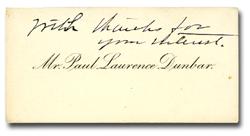 With thanks for
your interest.
Mr. Paul Laurence Dunbar.